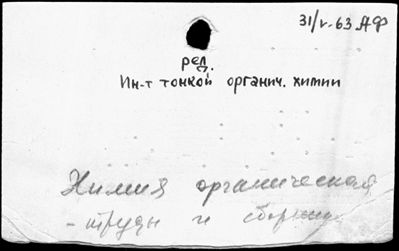 31/V-63 АФ
ред.
Ин-т тонкой органич. химии
Химия органическая
- труды и сборники